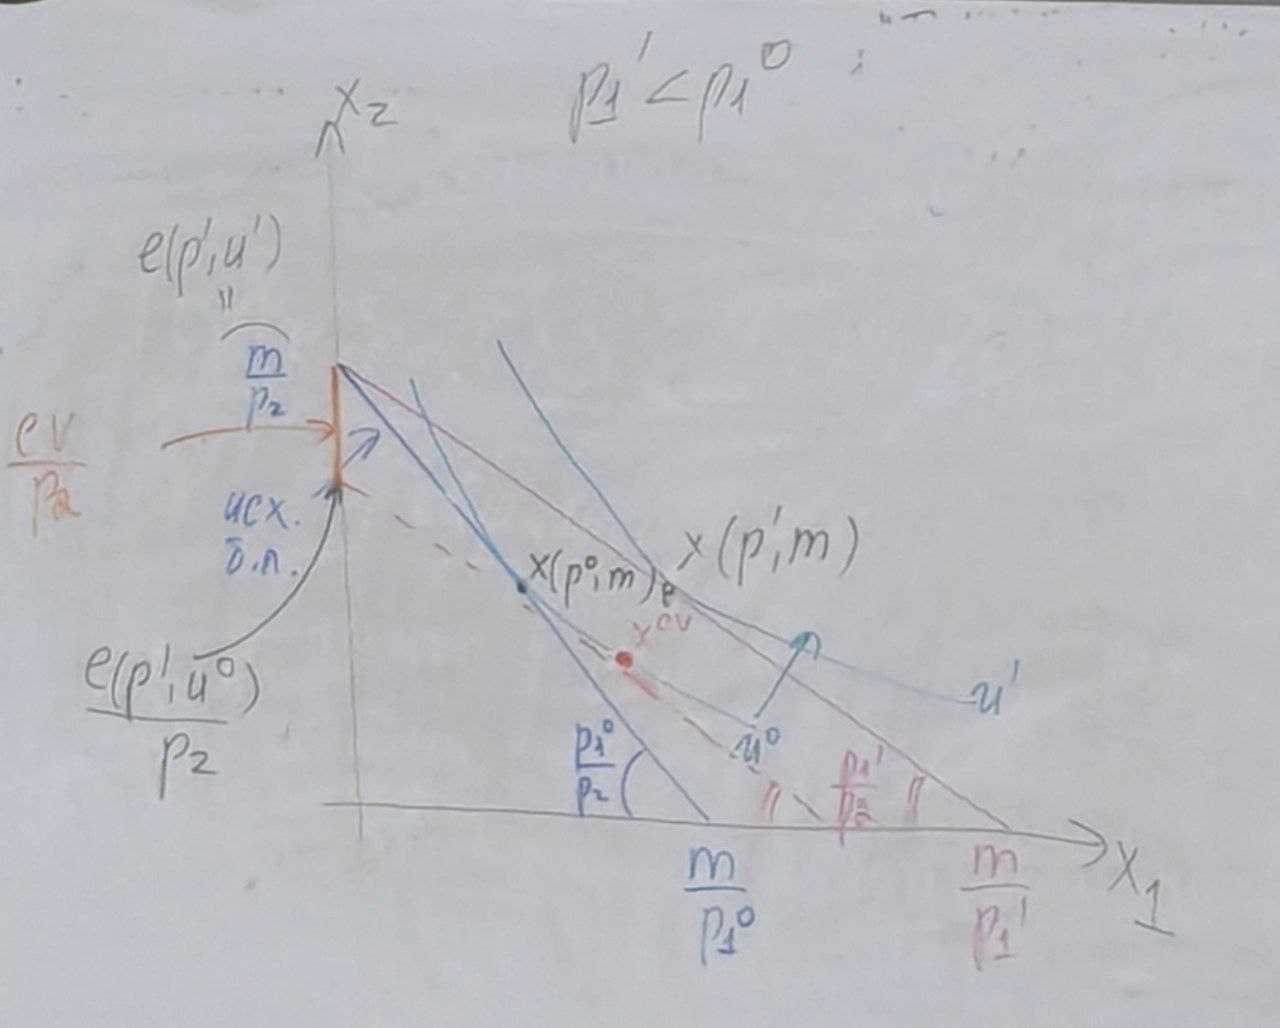 p₁' < p₁⁰
x₂
e(p', u')
=
m/p₂
cv/p₂
исх.
б.л.
e(p', u⁰)/p₂
x(p⁰, m)
x(p', m)
xᶜᵛ
u'
u⁰
p₁⁰/p₂
p₁'/p₂
m/p₁⁰
m/p₁'
x₁